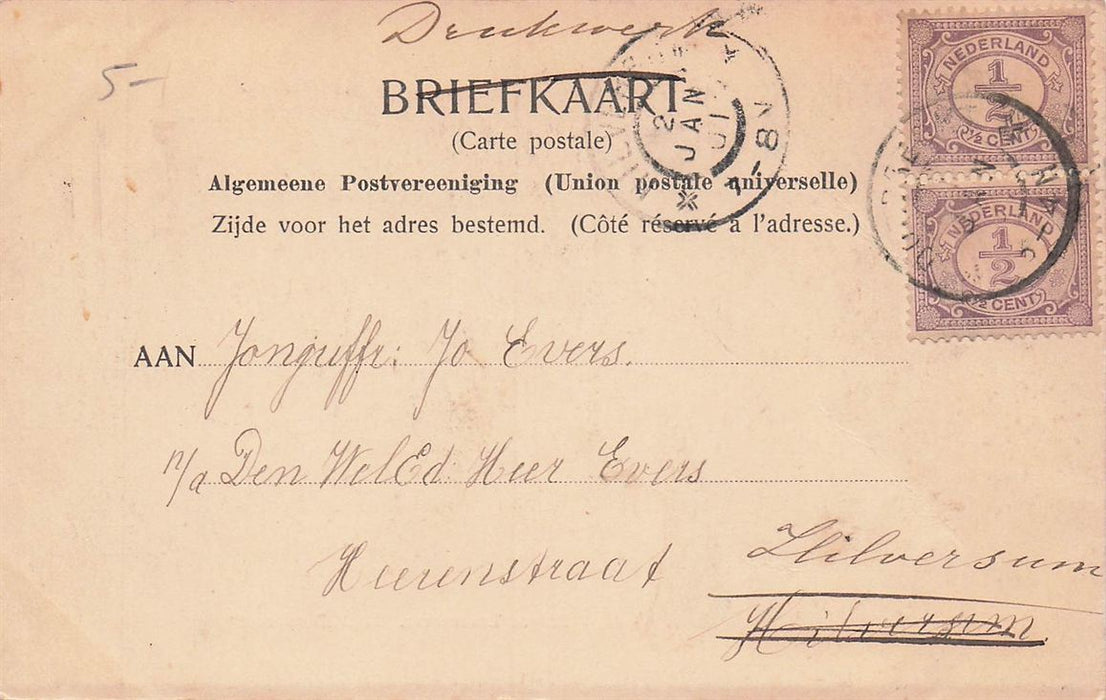 Drukwerk
5-
BRIEFKAART
(Carte postale)
Algemeene Postvereeniging (Union postale universelle)
Zijde voor het adres bestemd. (Côté réservé à l'adresse.)
NEDERLAND
1/2
(½ CENT)
NEDERLAND
1/2
(½ CENT)
2 JAN 01
7-8N
AAN Jonguffr: Jo Evers.
p/a Den WelEd: Heer Evers
Heerenstraat
Hilversum
Hilversum.